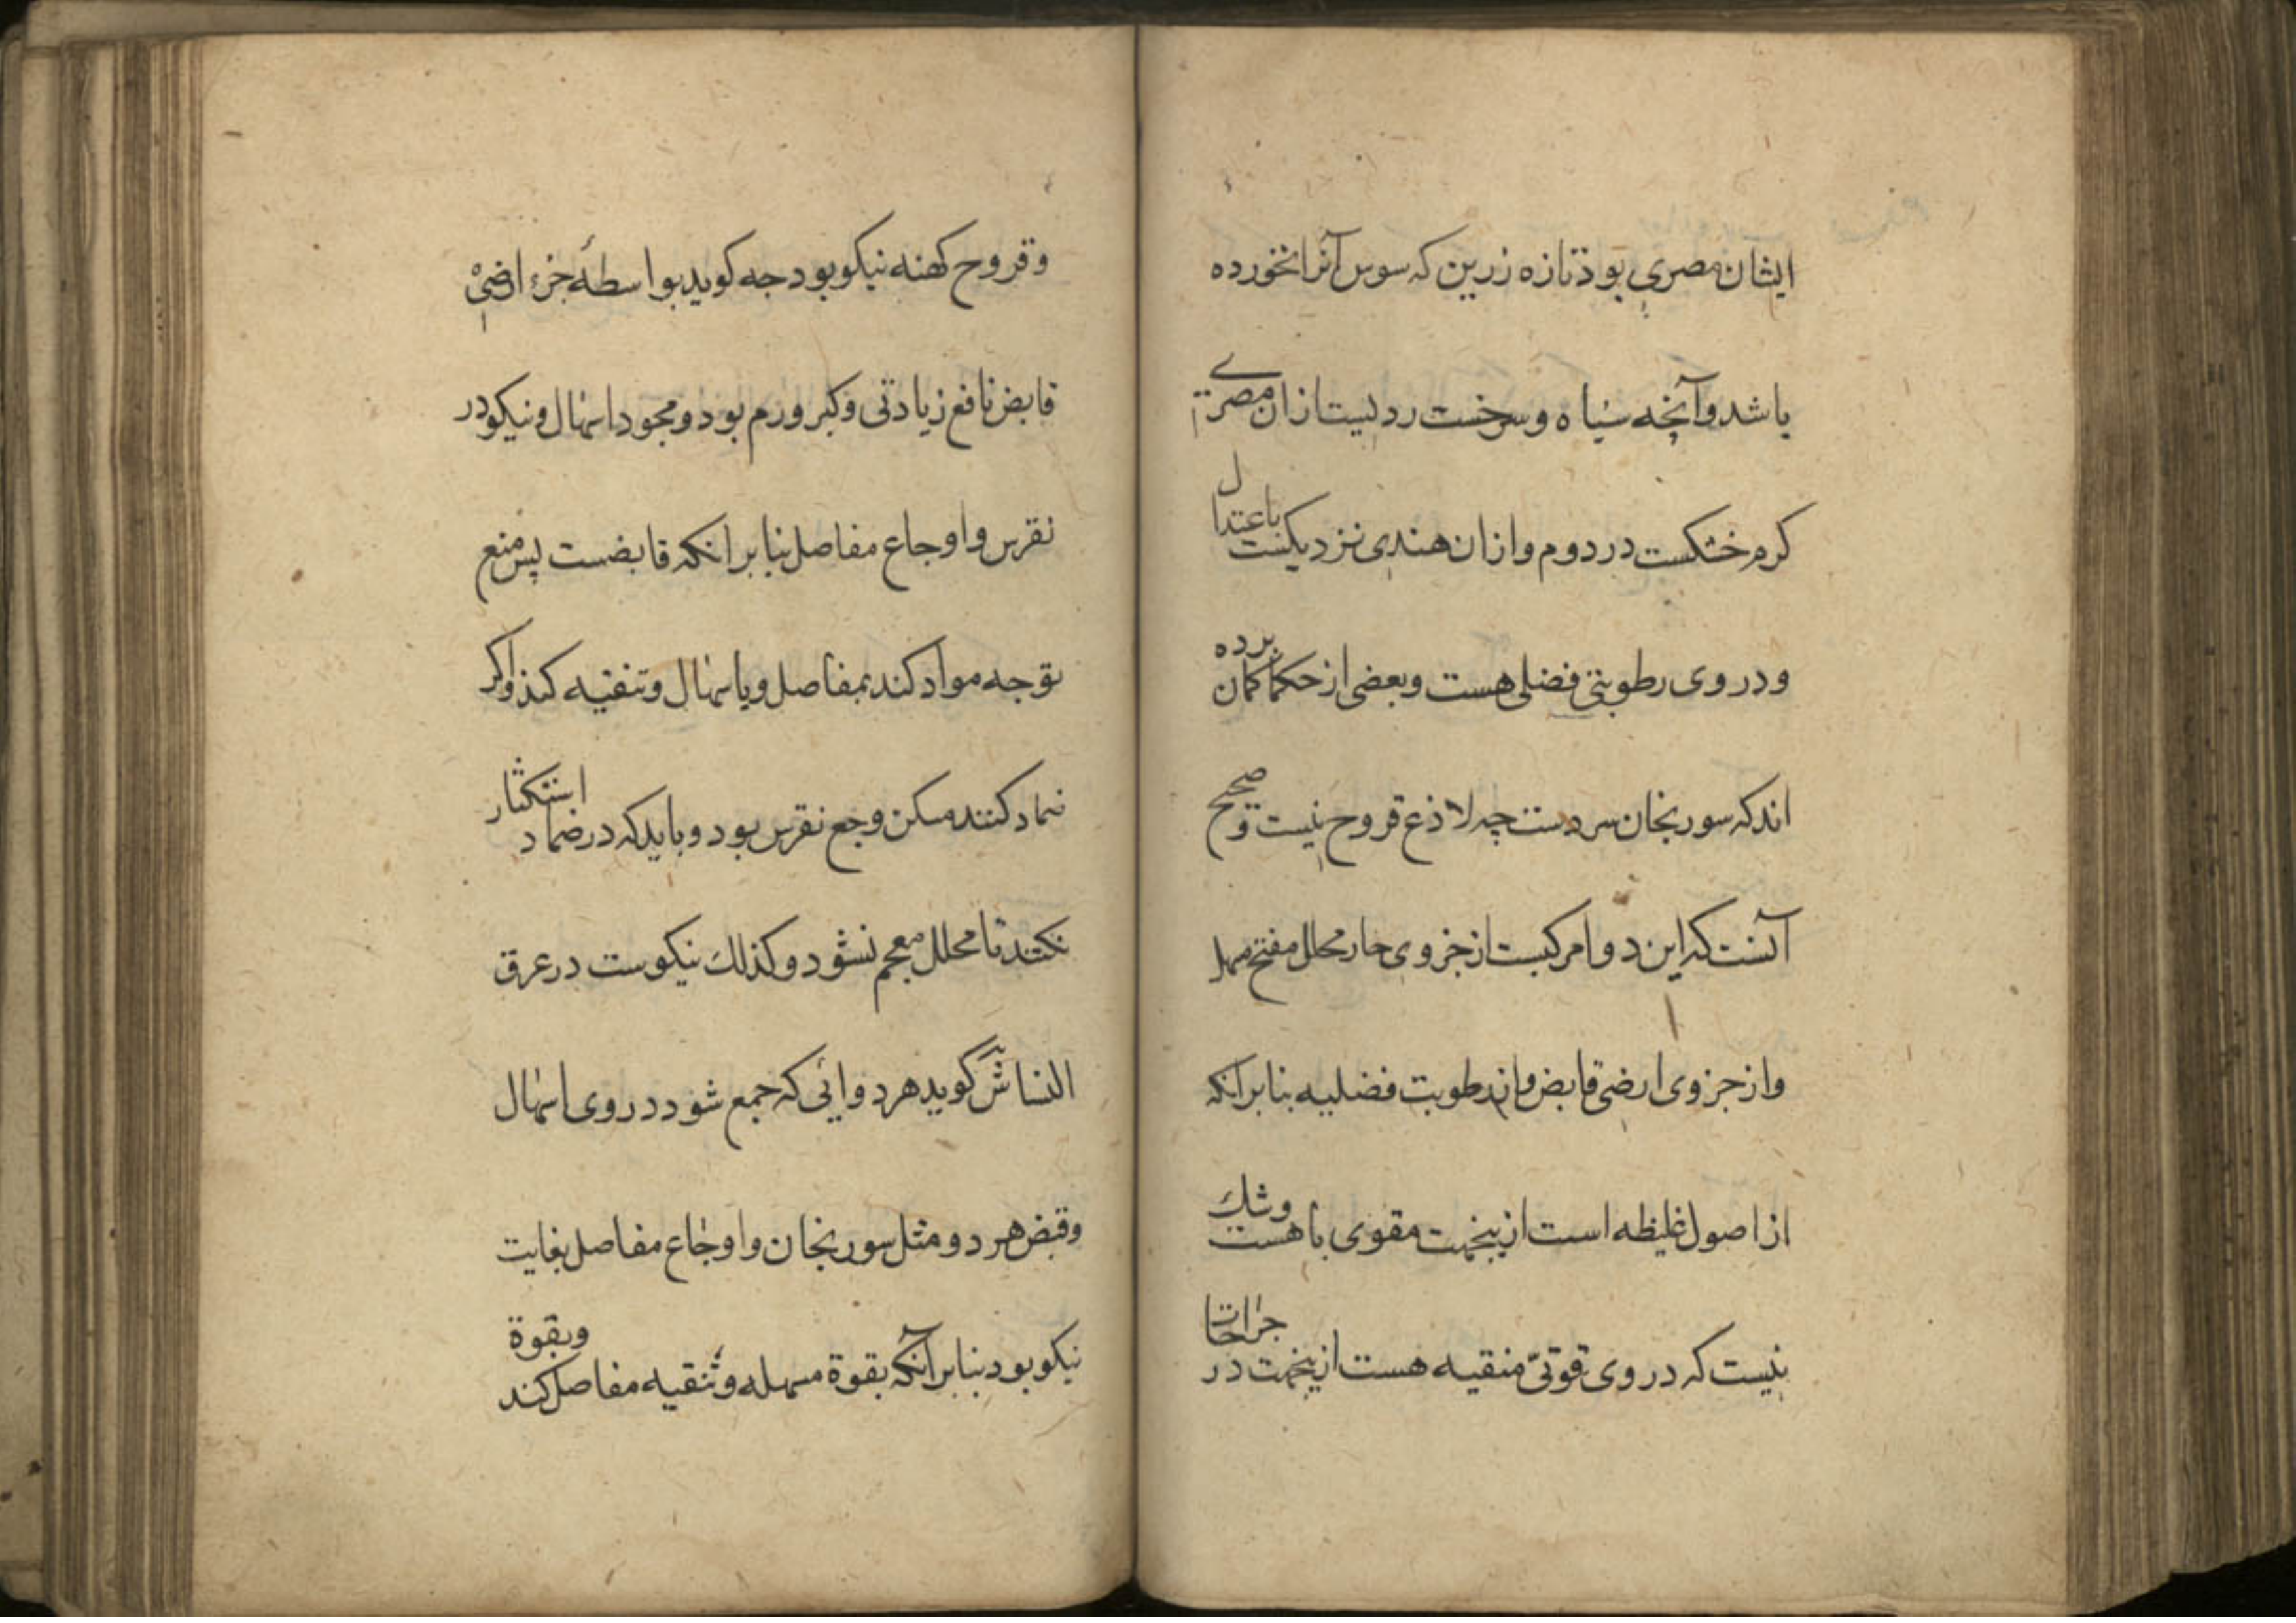 ایشان مصری بود تازه زرین که سوس آنرا نخورده
باشد وآنچه سیاه و سرخست ردیست از ان مصری
کرم خشکست در دوم و ازان هندی نزدیکست باعتدال
و در وی رطوبتی فضلی هست و بعضی از حکما کمان برده
اند که سورنجان سردست چه لاذع قروح نیست و صحیح
آنست که این دوا مرکبست از جزوی حار محلل مفتح مسهل
و از جزوی ارضی قابض و از رطوبت فضلیه بنابر آنکه
از اصول غلیظه است ازینجهت مقوی باهست وشك
نیست که در وی قوتی منقیه هست ازینجهت در جراحات
وقروح کهنه نیکو بود جه کوید بواسطهٔ جزء ارضی
قابض نافع زیادتی وکبر ورم بود و مجود اسهال و نیکو در
نقرس و اوجاع مفاصل بنابر انکه قابضست پس منع
توجه مواد کند بمفاصل و باسهال و تنقیه کند واکر
ضماد کنند مسکن وجع نقرس بود و باید که در ضماد استکثار
نکنند تا محلل معجم نشود و کذلك نیکوست در عرق
النسا ش گوید هر دوائی که جمع شود در وی اسهال
و قبض هر دو مثل سورنجان و اوجاع مفاصل بغایت
نیکو بود بنابر آنکه بقوة مسهله و تنقیه مفاصل کند وبقوة